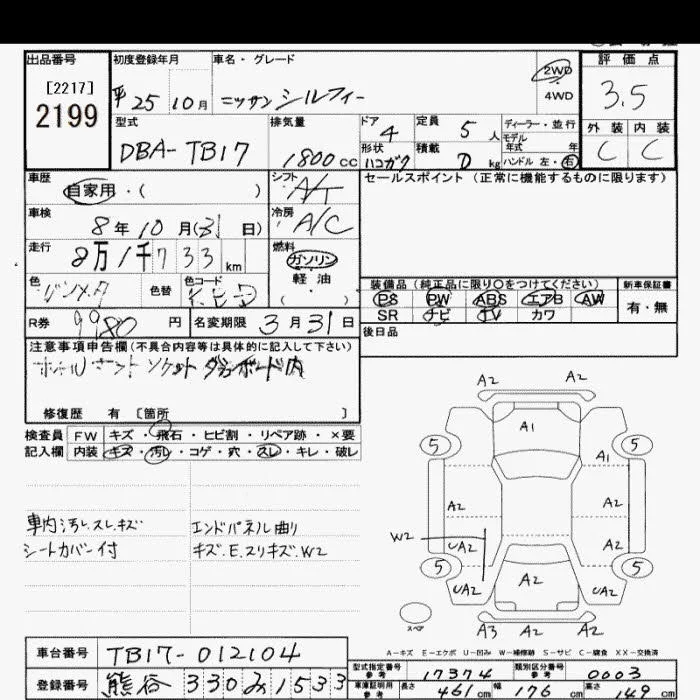 出品番号 初度登録年月 車名・グレード 評価点
[2217] 2199 平25 10月 ニッサン シルフィー 2WD 4WD 3.5
型式 排気量 ドア 4 定員 5人 ディーラー・並行 外装 内装
DBA-TB17 1800cc モデル年式 年
形状 ハコガタ 積載 D kg ハンドル 左・右 C C
車歴 自家用・( ) シフト A/T セールスポイント(正常に機能するものに限ります)
車検 8年10月(31日) 冷房 A/C
走行 8万1千733km 燃料 ガソリン 軽油 ( )
色 色替 色コード 装備品(純正品に限り○をつけてください) 新車保証書
PS PW ABS エアB AW 有・無
SR ナビ TV カワ
R券 9980円 名変期限 3月31日 後日品
注意事項申告欄(不具合内容等は具体的に記入して下さい)
ソケット ダッシュボード内
修復歴 有[箇所 ]
検査員記入欄 FW キズ・飛石・ヒビ割・リペア跡・×要
内装 キズ・汚レ・コゲ・穴・スレ・キレ・破レ
車内汚レ.スレ.キズ エンドパネル曲り
シートカバー付 キズ.E.スリキズ.W2
A2 A2
A1
5 5
A1
A2 A2
W2 A2
UA2
5 5
A2
UA2 UA2
スペア
A3 A2 A2
A-キズ E-エクボ U-凹み W-補修跡 S-サビ C-腐食 XX-交換済
車台番号 TB17-012104
登録番号 熊谷 330 み 1533
型式指定番号 参考 17374 類別区分番号 参考 0003
車庫証明用 参考 長さ 461cm 幅 176cm 高さ 149cm